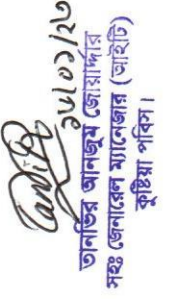 ১৮/০১/২৬
তানভির আনজুম জোয়ার্দ্দার
সহঃ জেনারেল ম্যানেজার (আইটি)
কুষ্টিয়া পবিস।